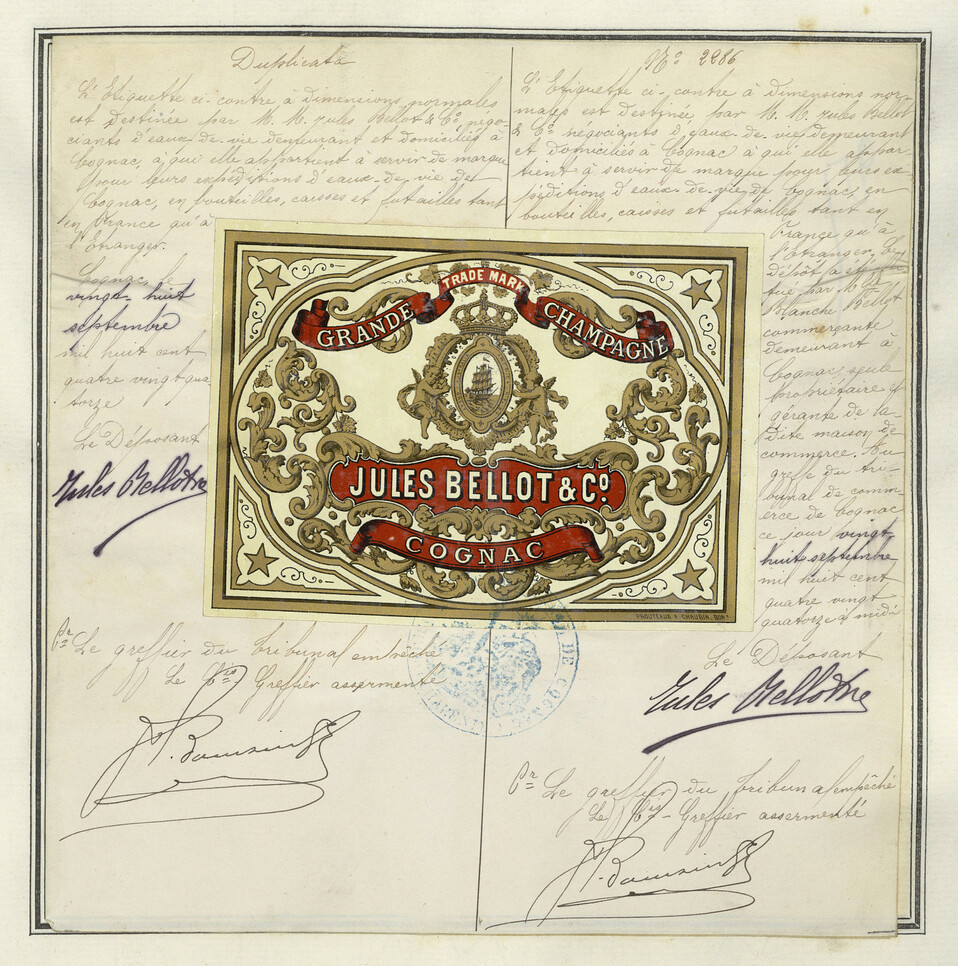 Duplicata
L'Etiquette ci-contre à dimensions normales
est destinée par M.M. Jules Bellot & Cº, négo-
ciants d'eaux-de-vie demeurant et domiciliés à
Cognac, à qui elle appartient à servir de marque
pour leurs expéditions d'eaux-de-vie de
Cognac, en bouteilles, caisses et futailles tant
en France qu'à
l'Etranger.
Cognac, le
vingt-huit
septembre
mil huit cent
quatre vingt qua-
torze
Le Déposant
Jules Bellot
Pr Le greffier du tribunal empêché
Le Cis Greffier assermenté
Nº 2286
L'Etiquette ci-contre à dimensions nor-
males est destinée, par M.M. Jules Bellot
& Cº négociants d'eaux-de-vie demeurant
et domiciliés à Cognac à qui elle appar-
tient à servir de marque pour leurs ex-
péditions d'eaux-de-vie de Cognac, en
bouteilles, caisses et futailles tant en
France qu'à
l'étranger,
dépôt
par Mme
Blanche Bellot
commerçante
demeurant à
Cognac, seule
propriétaire &
gérante de la-
dite maison de
commerce. Au
greffe du tri-
bunal de comm-
erce de Cognac
ce jour vingt-
huit septembre
mil huit cent
quatre vingt
quatorze à midi
Le Déposant
Jules Bellot
Pr Le greffier du tribunal empêché
Le Cis-Greffier assermenté
TRADE MARK
GRANDE CHAMPAGNE
JULES BELLOT & Cº
COGNAC